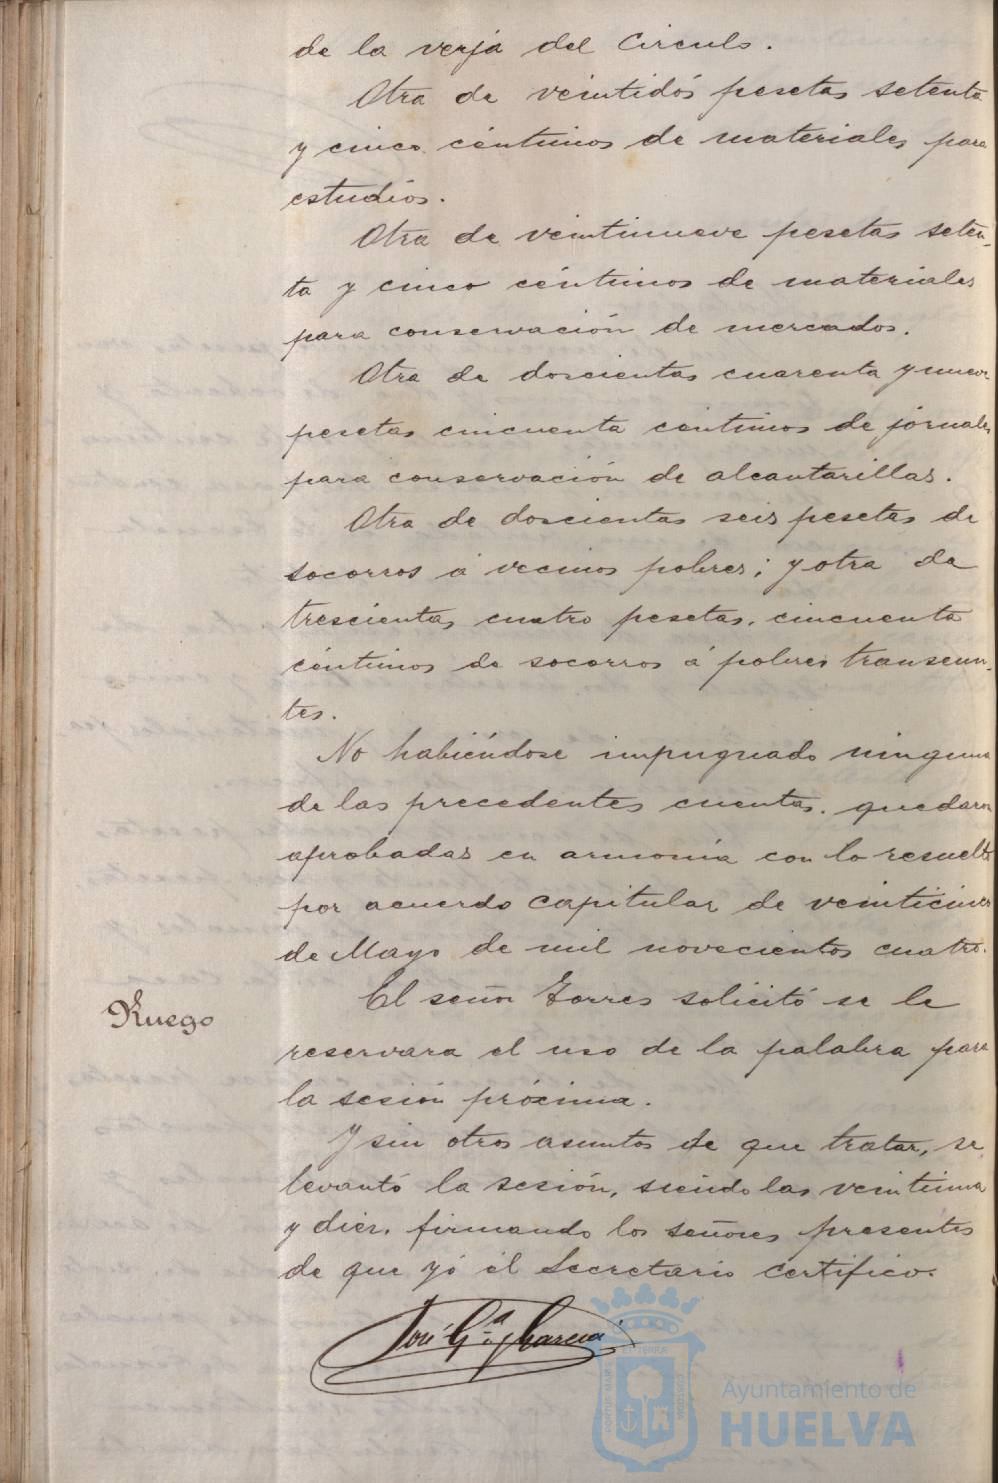 de la verja del Circulo.
Otra de veintidós pesetas setenta
y cinco céntimos de materiales para
estudios.
Otra de veintinueve pesetas seten-
ta y cinco céntimos de materiales
para conservación de mercados.
Otra de doscientas cuarenta y nueve
pesetas cincuenta centimos de jornales
para conservación de alcantarillas.
Otra de doscientas seis pesetas de
socorros á vecinos pobres; y otra de
trescientas cuatro pesetas, cincuenta
céntimos de socorros á pobres transeun-
tes.
No habiéndose impugnado ninguna
de las precedentes cuentas, quedaron
aprobadas en armonía con lo resuelto
por acuerdo capitular de veinticinco
de Mayo de mil novecientos cuatro.
Ruego
El señor Torres solicitó se le
reservara el uso de la palabra para
la sesión próxima.
Y sin otros asuntos de que tratar, se
levantó la sesión, siendo las veintiuna
y diez, firmando los señores presentes
de que yó el Secretario certifico.
José Gª y García
PORTUS MARIS ET TERRÆ CUSTODIA
Ayuntamiento de
HUELVA